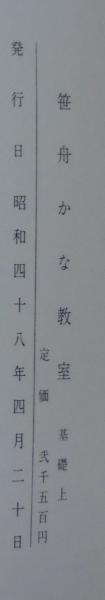 笹舟かな教室 基礎上
定価 弐千五百円
発行日 昭和四十八年四月二十日